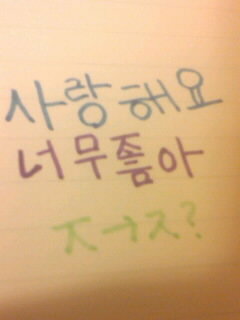 사랑해요
너무좋아
ㅈ→ㅈ?